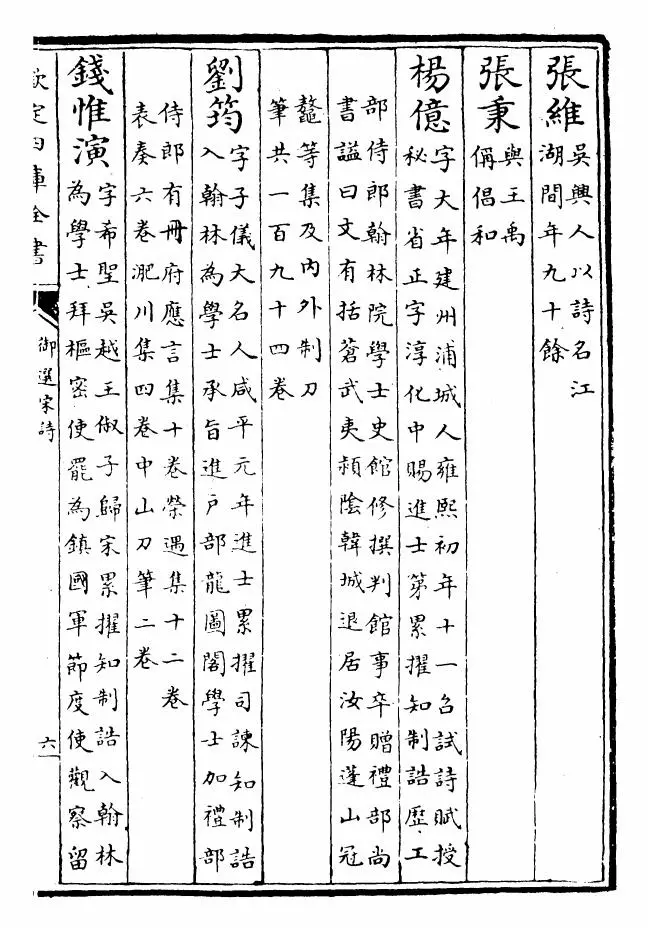 張維吳興人以詩名江
湖間年九十餘
張秉與王禹
偁倡和
楊億字大年建州浦城人雍熙初年十一召試詩賦授
秘書省正字淳化中賜進士第累擢知制誥歷工
部侍郎翰林院學士史館修撰判館事卒贈禮部尚
書謚曰文有括蒼武夷潁陰韓城退居汝陽蓬山冠
鼇等集及内外制刀
筆共一百九十四卷
劉筠字子儀大名人咸平元年進士累擢司諫知制誥
入翰林為學士承旨進戶部龍圖閣學士加禮部
侍郎有冊府應言集十卷榮遇集十二卷
表奏六卷淝川集四卷中山刀筆二卷
錢惟演字希聖吳越王俶子歸宋累擢知制誥入翰林
為學士拜樞密使罷為鎮國軍節度使觀察留
欽定四庫全書
御選宋詩
六